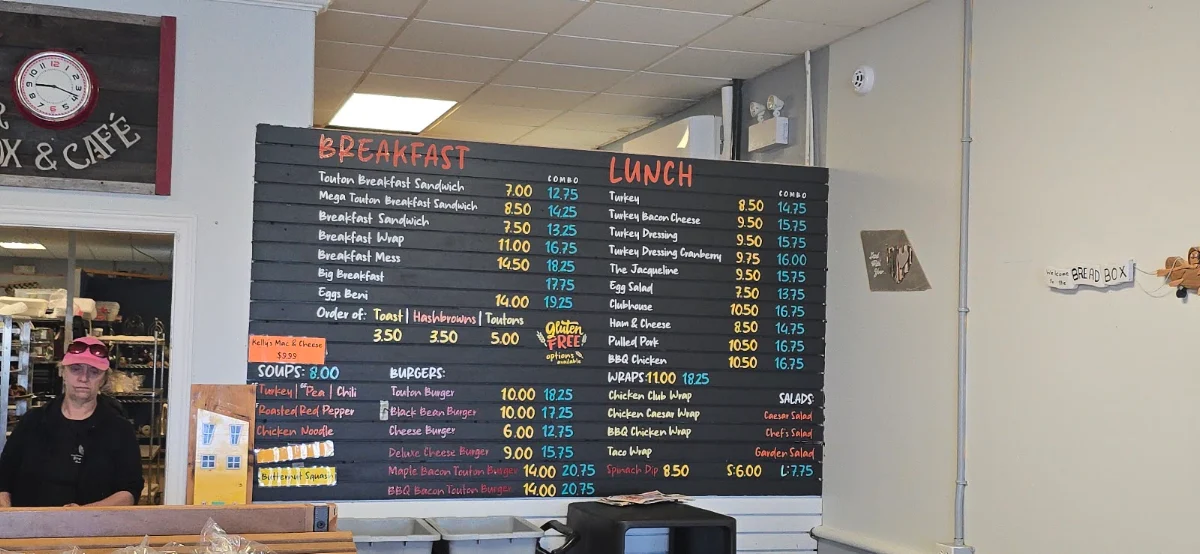 X & CAFÉ
12 1 2 3 4 5 6 7 8 9 10 11
BREAKFAST
COMBO
Touton Breakfast Sandwich 7.00 12.75
Mega Touton Breakfast Sandwich 8.50 14.25
Breakfast Sandwich 7.50 13.25
Breakfast Wrap 11.00 16.75
Breakfast Mess 14.50 18.25
Big Breakfast 17.75
Eggs Beni 14.00 19.25
Order of: Toast | Hashbrowns | Toutons
3.50 3.50 5.00
Gluten
FREE
options
available
Kelly's Mac & Cheese
$9.99
SOUPS: 8.00
Turkey | Pea | Chili
Roasted Red Pepper
Chicken Noodle
Butternut Squash
BURGERS:
Touton Burger 10.00 18.25
Black Bean Burger 10.00 17.25
Cheese Burger 6.00 12.75
Deluxe Cheese Burger 9.00 15.75
Maple Bacon Touton Burger 14.00 20.75
BBQ Bacon Touton Burger 14.00 20.75
LUNCH
COMBO
Turkey 8.50 14.75
Turkey Bacon Cheese 9.50 15.75
Turkey Dressing 9.50 15.75
Turkey Dressing Cranberry 9.75 16.00
The Jacqueline 9.50 15.75
Egg Salad 7.50 13.75
Clubhouse 10.50 16.75
Ham & Cheese 8.50 14.75
Pulled Pork 10.50 16.75
BBQ Chicken 10.50 16.75
WRAPS: 11.00 18.25
Chicken Club Wrap
Chicken Caesar Wrap
BBQ Chicken Wrap
Taco Wrap
Spinach Dip 8.50
SALADS:
Caesar Salad
Chef's Salad
Garden Salad
S:6.00 L:7.75
Welcome
to the
BREAD BOX